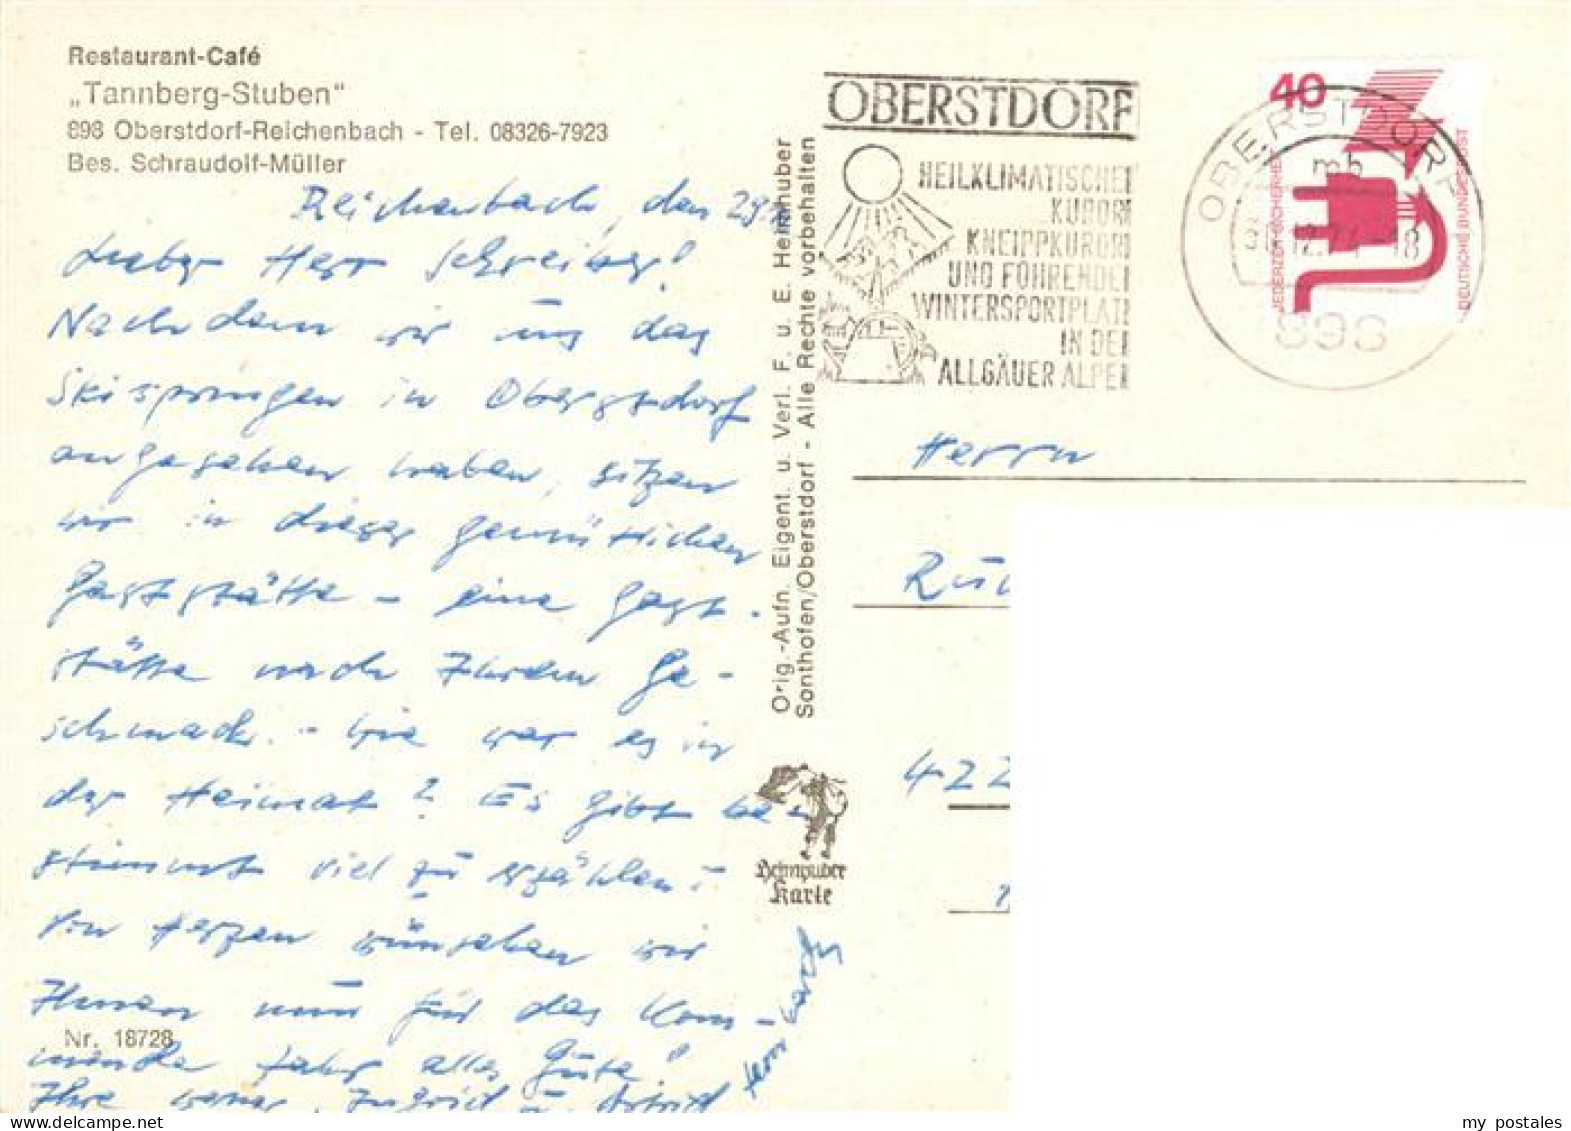 Restaurant-Café
„Tannberg-Stuben"
898 Oberstdorf-Reichenbach - Tel. 08326-7923
Bes. Schraudolf-Müller
Reichenbach, den 29.
Lieber Herr Schreiber!
Nachdem wir uns das
Skispringen in Oberstdorf
angesehen haben, sitzen
wir in dieser gemütlichen
Gaststätte - eine Gast-
stätte nach Ihrem Ge-
schmack. - Wie war es in
der Heimat? Es gibt be-
stimmt viel zu erzählen.
Von Herzen wünschen wir
Ihnen nun für das kom-
mende Jahr alles Gute!
Ihre Ingrid u. Astrid
Nr. 18728
Orig.-Aufn. Eigent. u. Verl. F. u. E. Heimhuber
Sonthofen/Oberstdorf - Alle Rechte vorbehalten
Heimhuber
Karte
OBERSTDORF
HEILKLIMATISCHER
KURORT
KNEIPPKURORT
UND FÜHRENDER
WINTERSPORTPLATZ
IN DER
ALLGÄUER ALPEN
OBERSTDORF
mb
12.74-18
898
40
JEDERZEIT SICHERHEIT
DEUTSCHE BUNDESPOST
Herrn
Ru
422
my postales